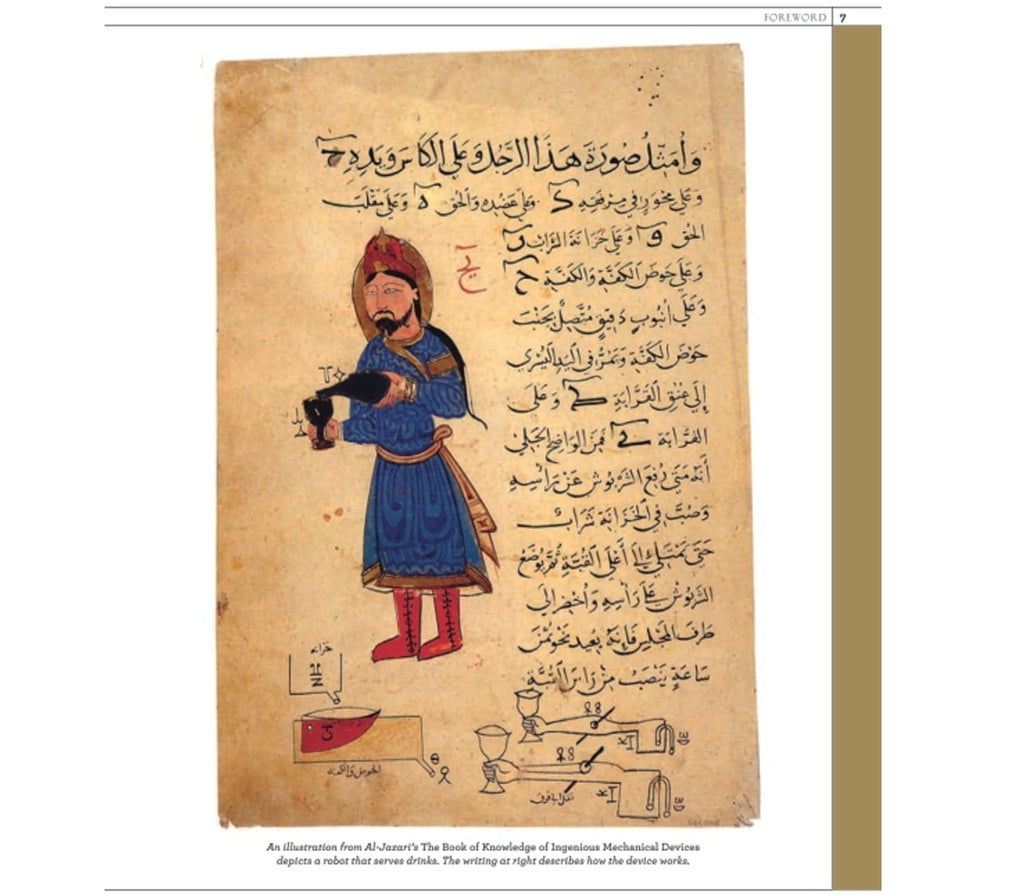 FOREWORD 7
وَأُمَثِّلُ صُورَةَ هَذَا الرَّجُل وَعَلَى الكَاسِ وَيَدِهِ ح
وَعَلَى مِحْوَرٍ فِي مِرْفَقِهِ وَعَلَى عَضُدِهِ وَالحُق ه وَعَلَى مَقْلَبِ
الحُق و وَعَلَى خِزَانَةِ الشَّرَابِ
وَعَلَى حَوْضِ الكَفَّةِ وَالكَفَّةِ ح
وَعَلَى أُنْبُوبٍ دَقِيقٍ مُتَّصِلٍ بِجَنْبِ
حَوْضِ الكَفَّةِ وَيَمُرُّ فِي اليَدِ اليُسْرَى
إِلَى عُنُقِ القَرَّابَةِ وَعَلَى
القَرَّابَةِ فَمِنَ الوَاضِحِ الجَلِيّ
أَنَّهُ مَتَى رُفِعَ الشَّرْبُوش عَنْ رَأْسِهِ
وَصُبَّ فِي الخِزَانَةِ شَرَابٌ
حَتَّى يَمْتَلِئَ إِلَى أَعْلَى ثُمَّ يُوضَعُ
الشَّرْبُوش عَلَى رَأْسِهِ وَأُحْضِرَ إِلَى
طَرَفِ المَجْلِسِ فَإِنَّهُ بَعِيد نَحْو ثُمْن
سَاعَةٍ يَنْصَبُّ مِنْ رَأْسِ
خزانه
الحوض والكفه
An illustration from Al-Jazari's The Book of Knowledge of Ingenious Mechanical Devices
depicts a robot that serves drinks. The writing at right describes how the device works.